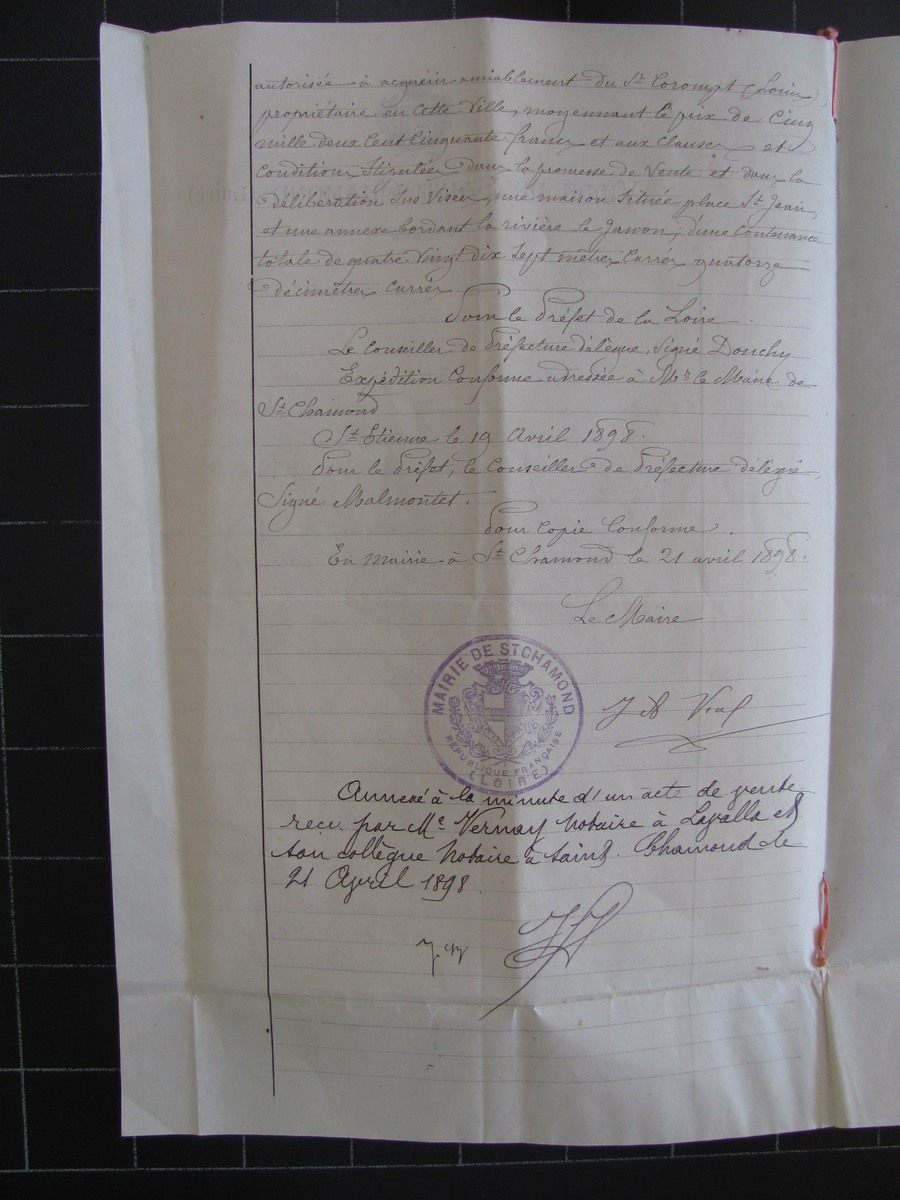 autorisée à acquérir amiablement du St Corompt (Louis),
propriétaire en cette Ville, moyennant le prix de Cinq
mille deux Cent Cinquante francs et aux clauses et
Conditions Stipulées dans la promesse de Vente et dans la
délibération Sus Visées, une maison Située place St Jean,
et une annexe bordant la rivière le Janon, d'une Contenance
totale de quatre Vingt dix Sept mètres Carrés quatorze
décimètres Carrés
Pour le Préfet de la Loire.
Le Conseiller de Préfecture délégué, Signé Douchy
Expédition Conforme adressée à Mr le Maire de
St Chamond
St Etienne le 19 Avril 1898.
Pour le Préfet, le Conseiller de Préfecture délégué,
Signé Malmontet.
Pour Copie Conforme.
En Mairie à St Chamond le 21 avril 1898.
Le Maire
MAIRIE DE ST CHAMOND
RÉPUBLIQUE FRANÇAISE
(LOIRE)
Annexé à la minute d'un acte de vente
reçu par Me Vernay notaire à Lavalla et
son collègue notaire à Saint-Chamond le
21 Avril 1898.